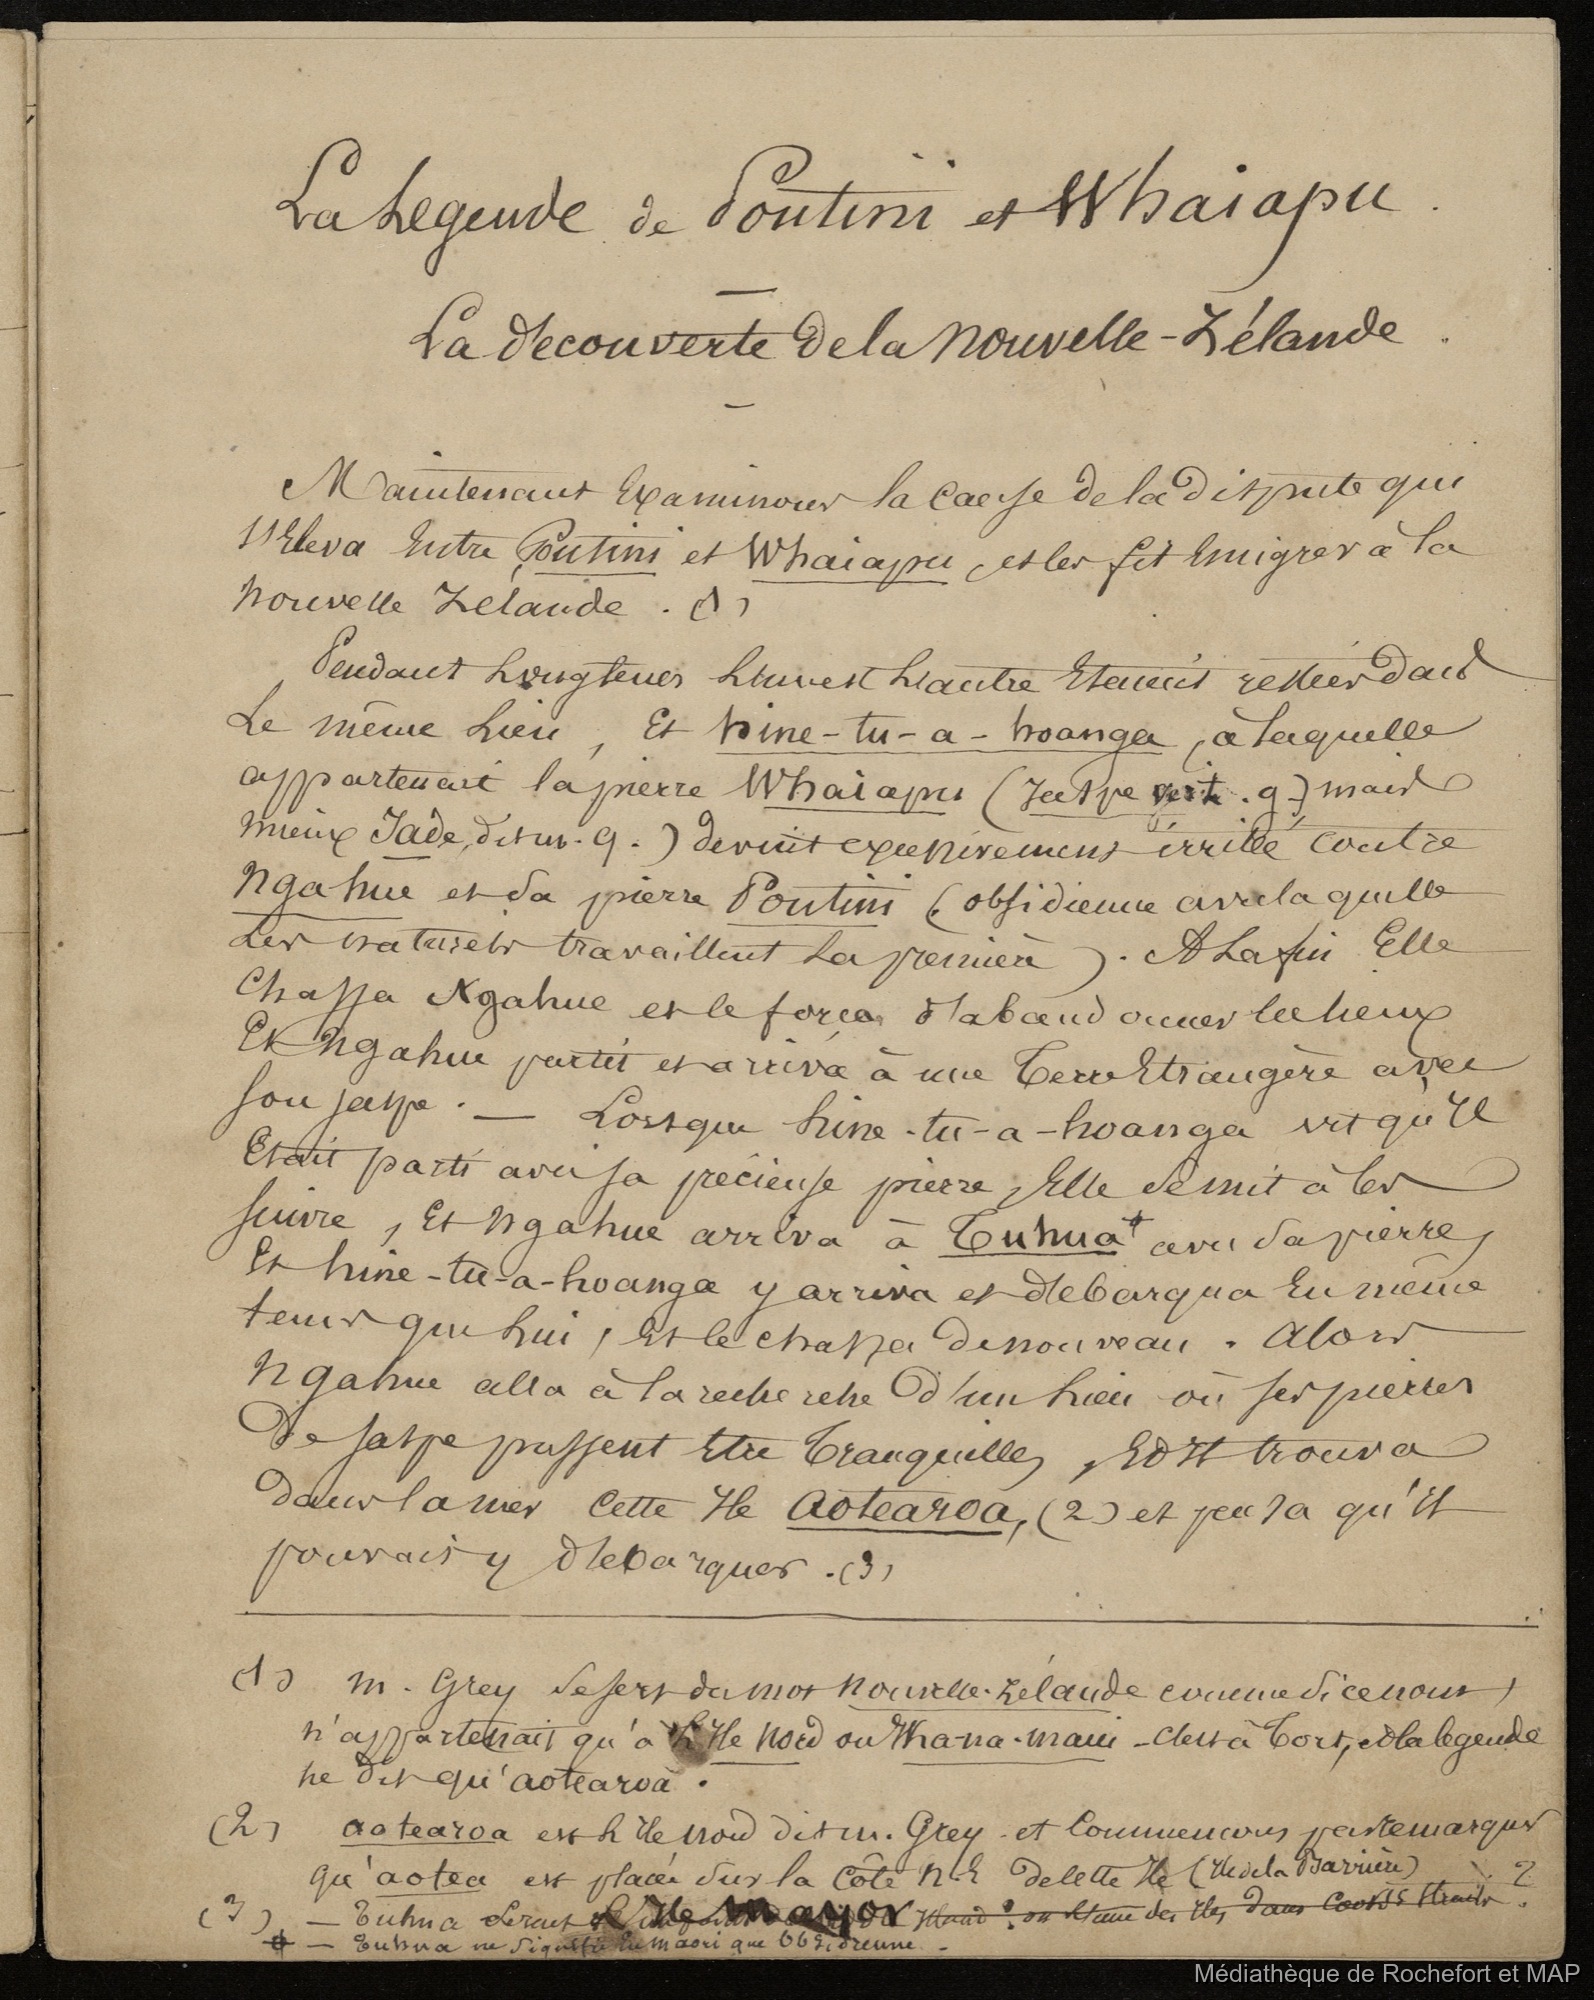 La Legende de Poutini et Whaiapu.
La decouverte de la Nouvelle-Zélande.
Maintenant Examinons la cause de la dispute qui
s'Eleva Entre Poutini et Whaiapu, et les fit Emigrer à la
Nouvelle Zélande. (1)
Pendant Longtems L'un et L'autre Etaient restés dans
Le même Lieu, Et hine-tu-a-hoanga, à laquelle
appartenait la pierre Whaiapu (Jaspe vert. g.) mais
mieux Jade, dit m. g.) devint excessivement irritée contre
Ngahue et sa pierre Poutini (obsidienne avec laquelle
Les naturels travaillent La première). A La fin Elle
Chassa Ngahue et le força d'abandonner les lieux
Et Ngahue partit et arriva à une Terre Etrangère avec
son jaspe. — Lorsque hine-tu-a-hoanga vit qu'il
Etait parti avec sa précieuse pierre, Elle se mit à les
suivre, Et Ngahue arriva à Tuhua+ avec sa pierre,
Et hine-tu-a-hoanga y arriva et débarqua En même
tems que Lui, Et le chassa de nouveau. Alors
Ngahue alla à la recherche d'un Lieu où ses pierres
De jaspe pussent Etre Tranquilles, Et Il trouva
dans la mer Cette Ile Aotearoa, (2) et pensa qu'il
pouvait y débarquer. (3)
(1) M. Grey se sert du mot Nouvelle-Zélande comme si ce nom,
n'appartenait qu'à L'Ile Nord ou Ika-na-maui - C'est à Tort, et la legende
ne dit qu'aotearoa.
(2) aotearoa est L'Ile nord dit m. Grey et Commencons par remarquer
qu'aotea est placée sur la Côte N.E de cette Ile (Ile de la Barrière)
(3) — Tuhua serait L'Ile Mayor ou L'une des Iles dans Cook's Strait.
+ — Tuhua ne signifie En maori que Obsidienne.
Médiathèque de Rochefort et MAP